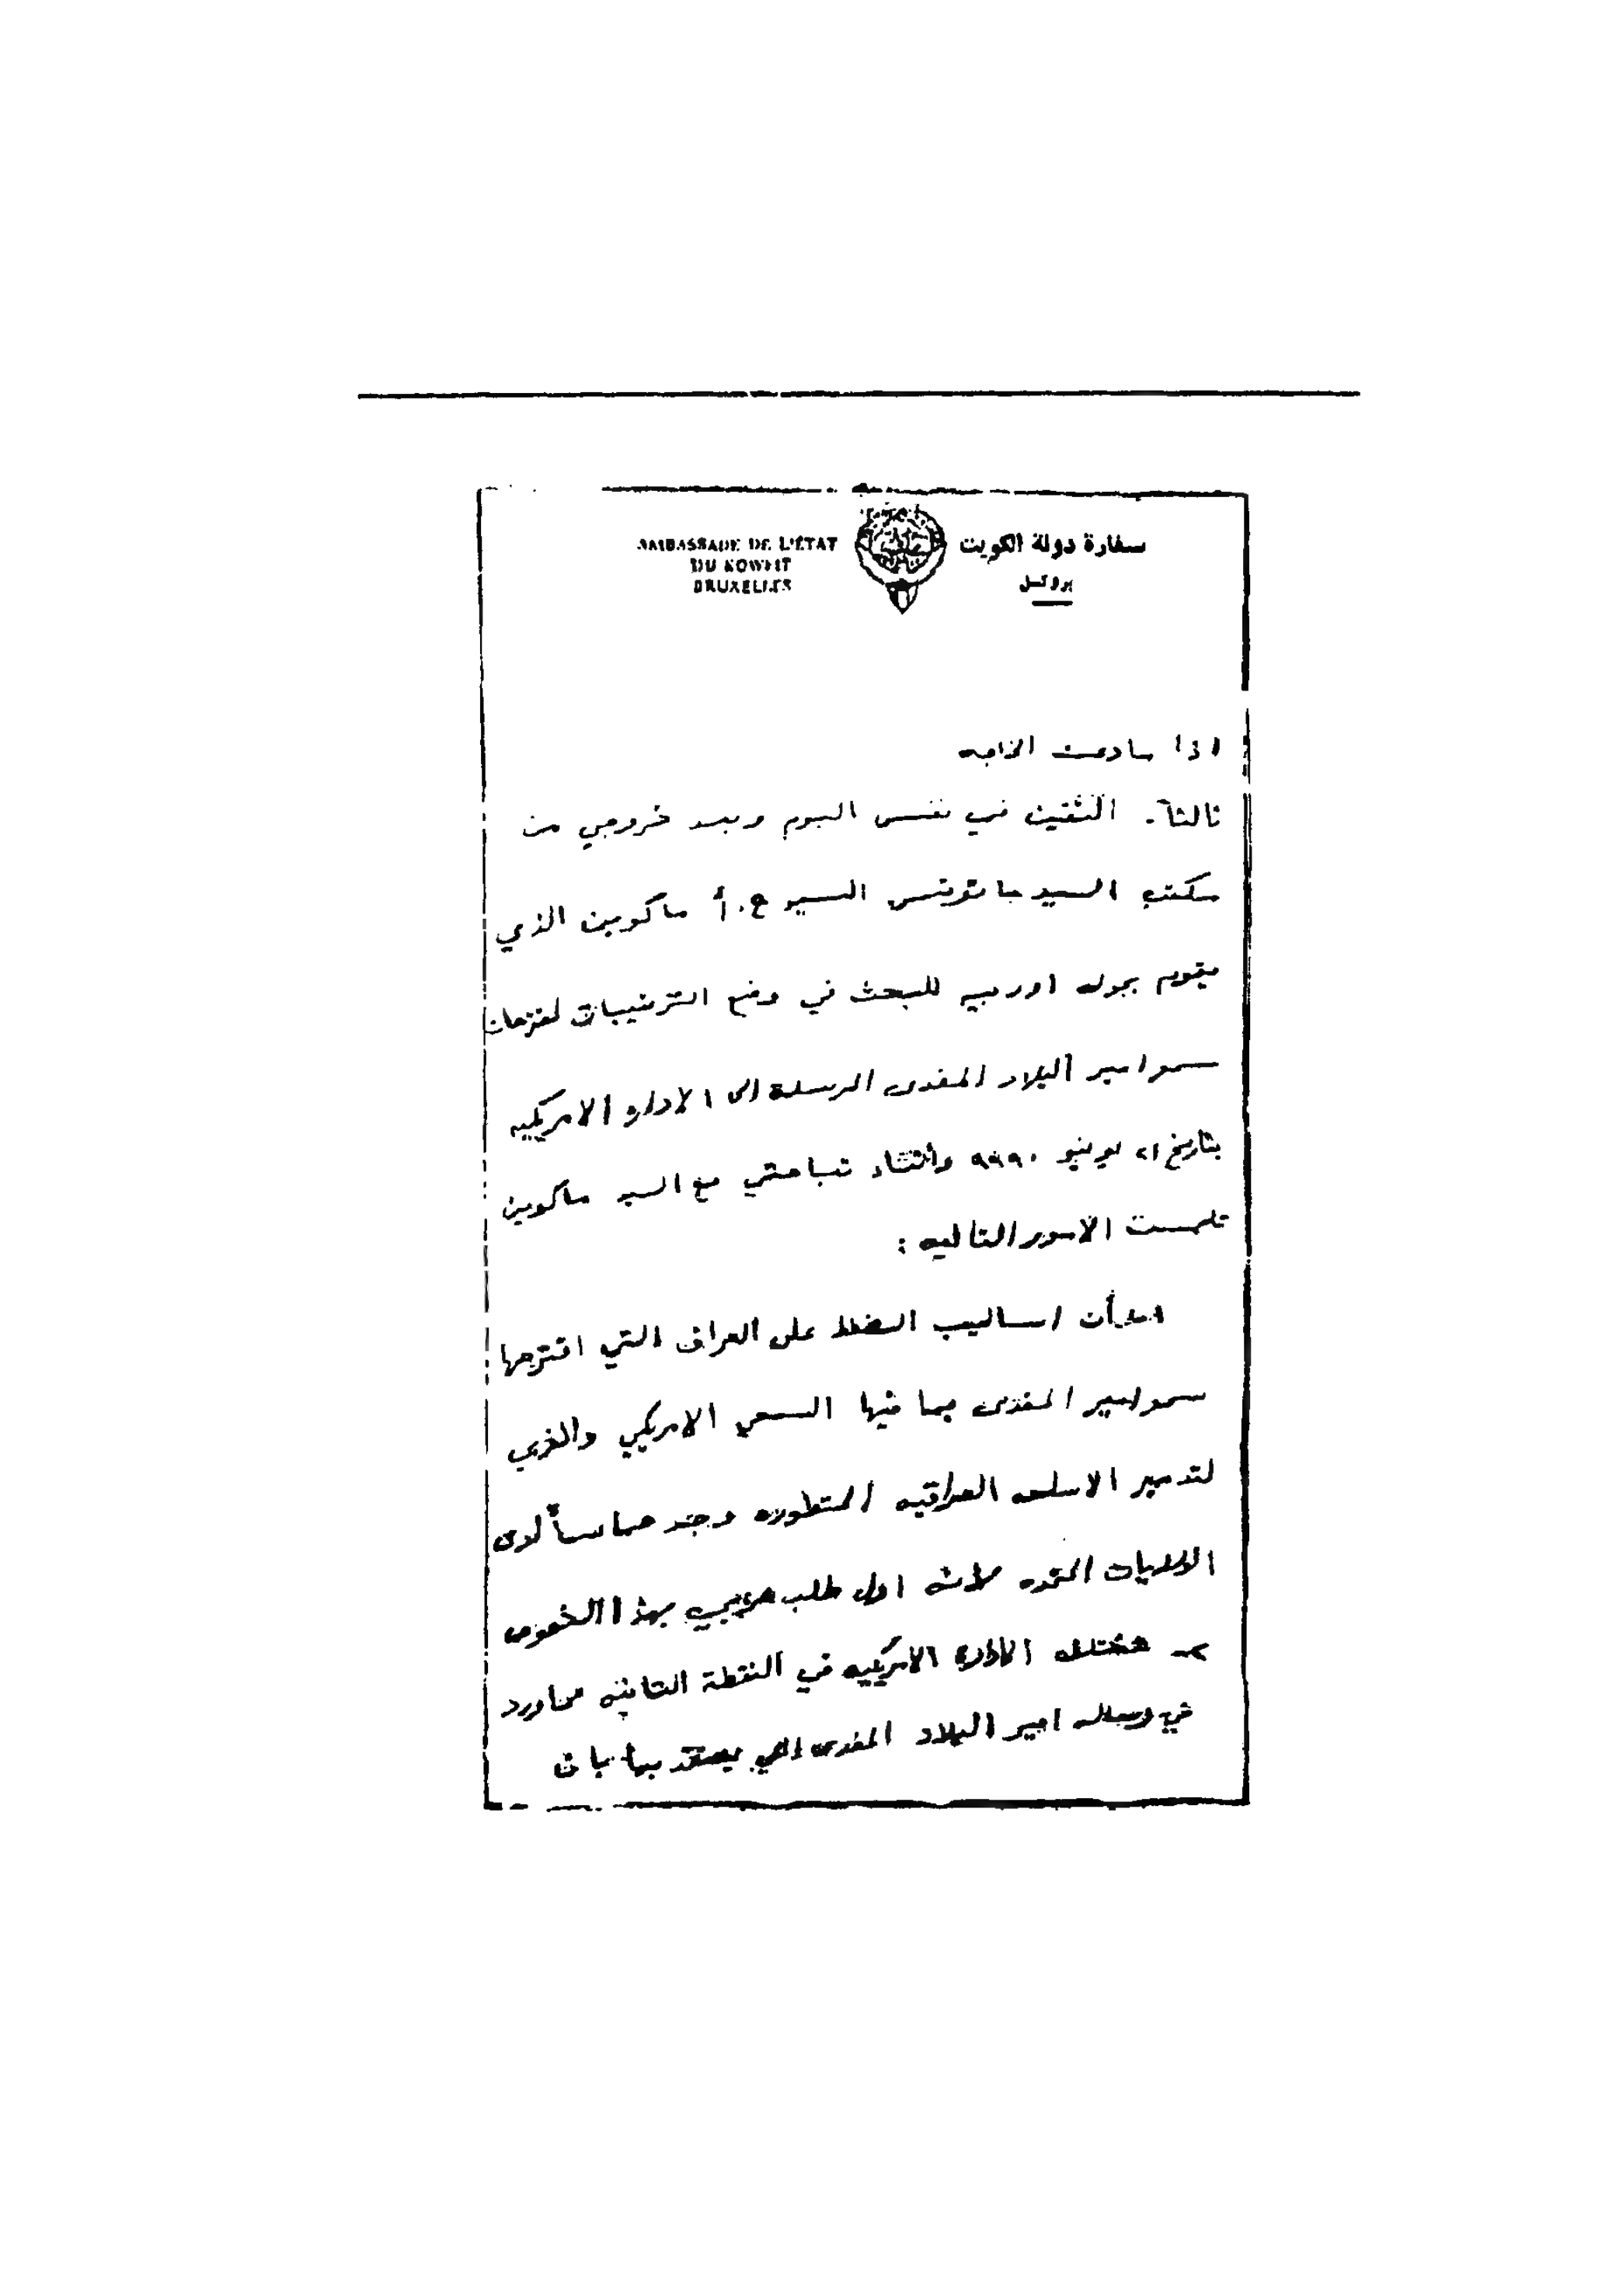 AMBASSADE DE L'ÉTAT
DU KOWEIT
BRUXELLES
سفارة دولة الكويت
بروكسل
اذا مادعت الحاجه
ثالثاً - التقيت في نفس اليوم وبعد خروجي من
مكتب السيد السيد ج. أ ماكوين الذي
يقوم بجوله اوربيه للبحث في وضع الترتيبات لمقترحات
سمو امير البلاد المفدى المرسلة الى الاداره الامريكيه
بتاريخ ٢١ يونيو ١٩٩٠ وأثناء تباحثي مع السيد ماكوين
تلمست الأمور التاليه :
أن اساليب الضغط على العراق التي اقترحها
سمو امير المفدى بما فيها السعي الامريكي والغربي
لتدمير الاسلحه العراقيه المتطوره وجد حماساً لدى
الولايات المتحده اول طلب بهذا الخصوص
٢- تختلف الادارة الامريكيه في النقطة الثانيه عما ورد
في رساله امير البلاد المفدى التي يعتقد بها بان